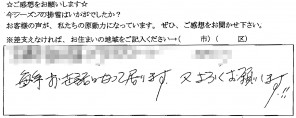 ☆ご感想をお願いします☆
今シーズンの排雪はいかがでしたか?
お客様の声が、私たちの原動力になっています。ぜひ、ご感想をお聞かせ下さい。
※差支えなければ、お住まいの地域をご記入ください→( 市)( 区)
毎年お世話になって居ります 又よろしくお願いします!!